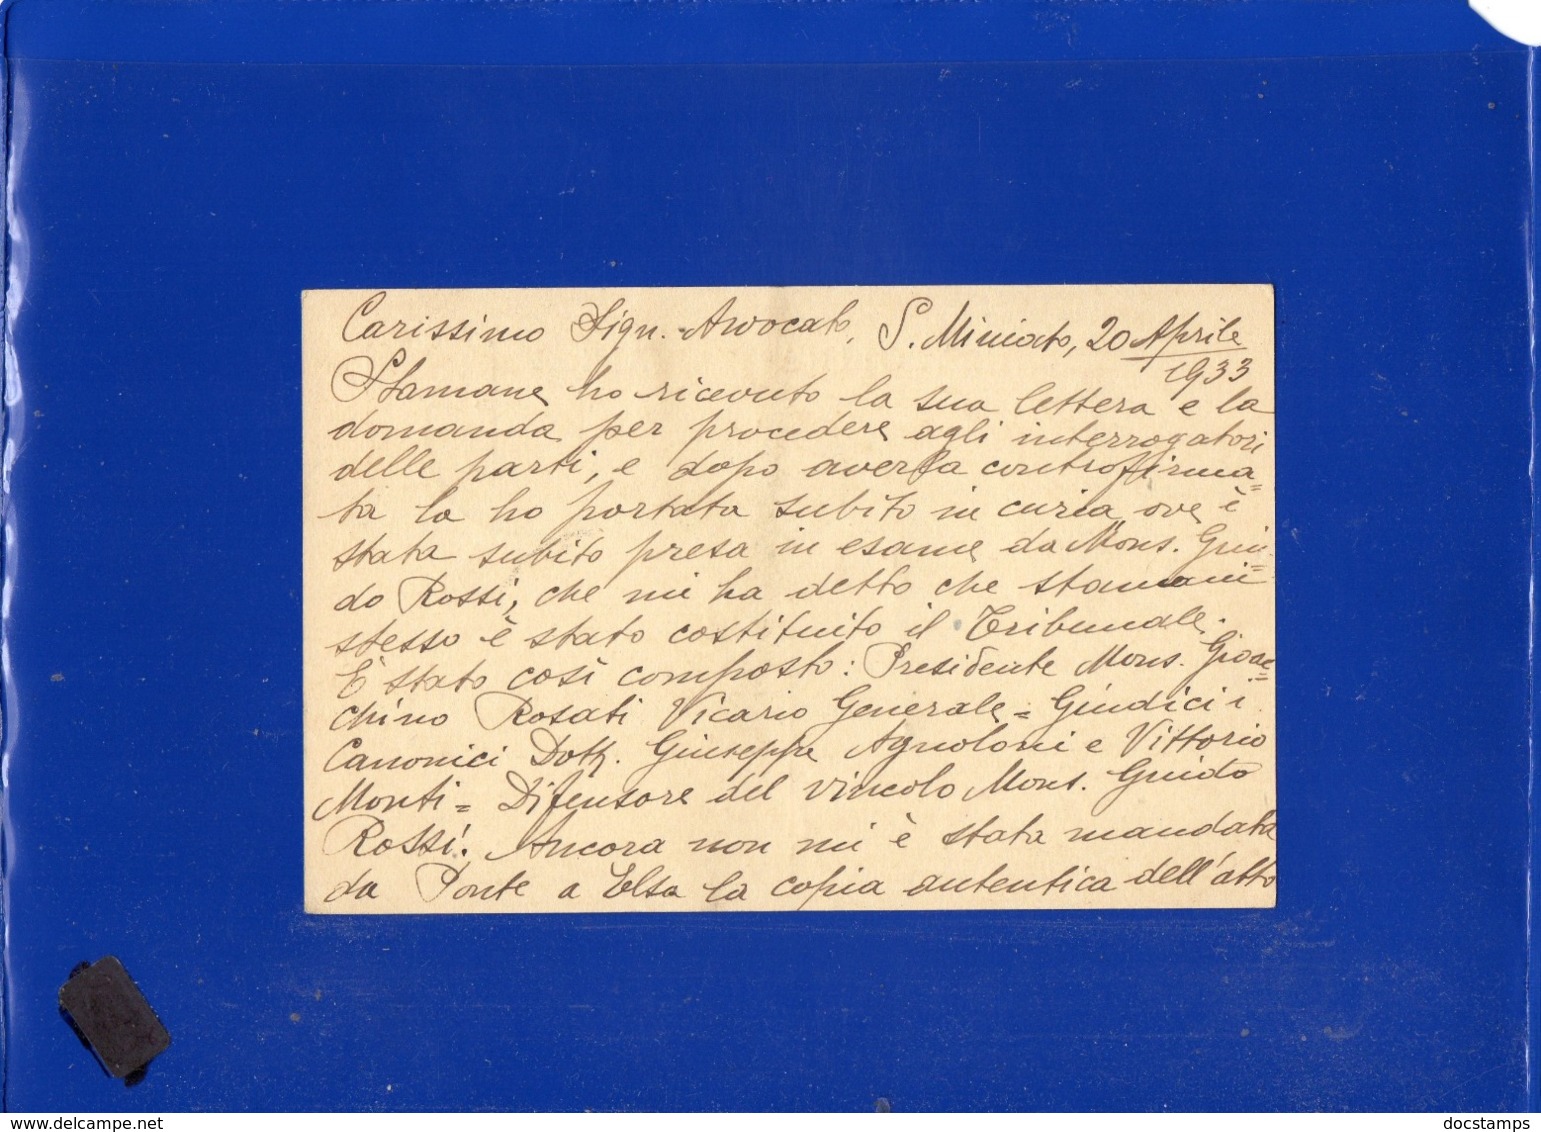 Carissimo Sign. Avvocato, S. Miniato, 20 Aprile
1933
Stamane ho ricevuto la sua lettera e la
domanda per procedere agli interrogatori
delle parti, e dopo averla controfirma=
ta la ho portata subito in curia ove è
stata subito presa in esame da Mons. Gui=
do Rossi, che mi ha detto che stamani
stesso è stato costituito il Tribunale.
È stato così composto: Presidente Mons. Gioac=
chino Rosati Vicario Generale = Giudici i
Canonici Dott. Giuseppe Agnoloni e Vittorio
Monti = Difensore del vincolo Mons. Guido
Rossi. Ancora non mi è stata mandata
da Ponte a Elsa la copia autentica dell'atto
delcampe.net
docstamps